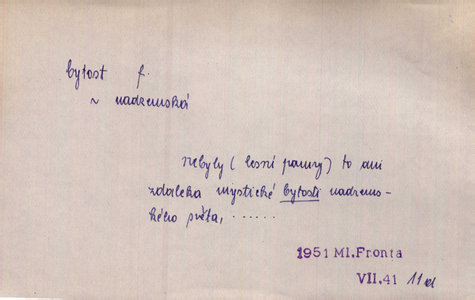 bytost f.
~ nadzemská
nebyly (lesní panny) to ani
zdaleka mystické bytosti nadzems-
kého světa, ......
1951 Ml.Fronta
VII.41 11 d